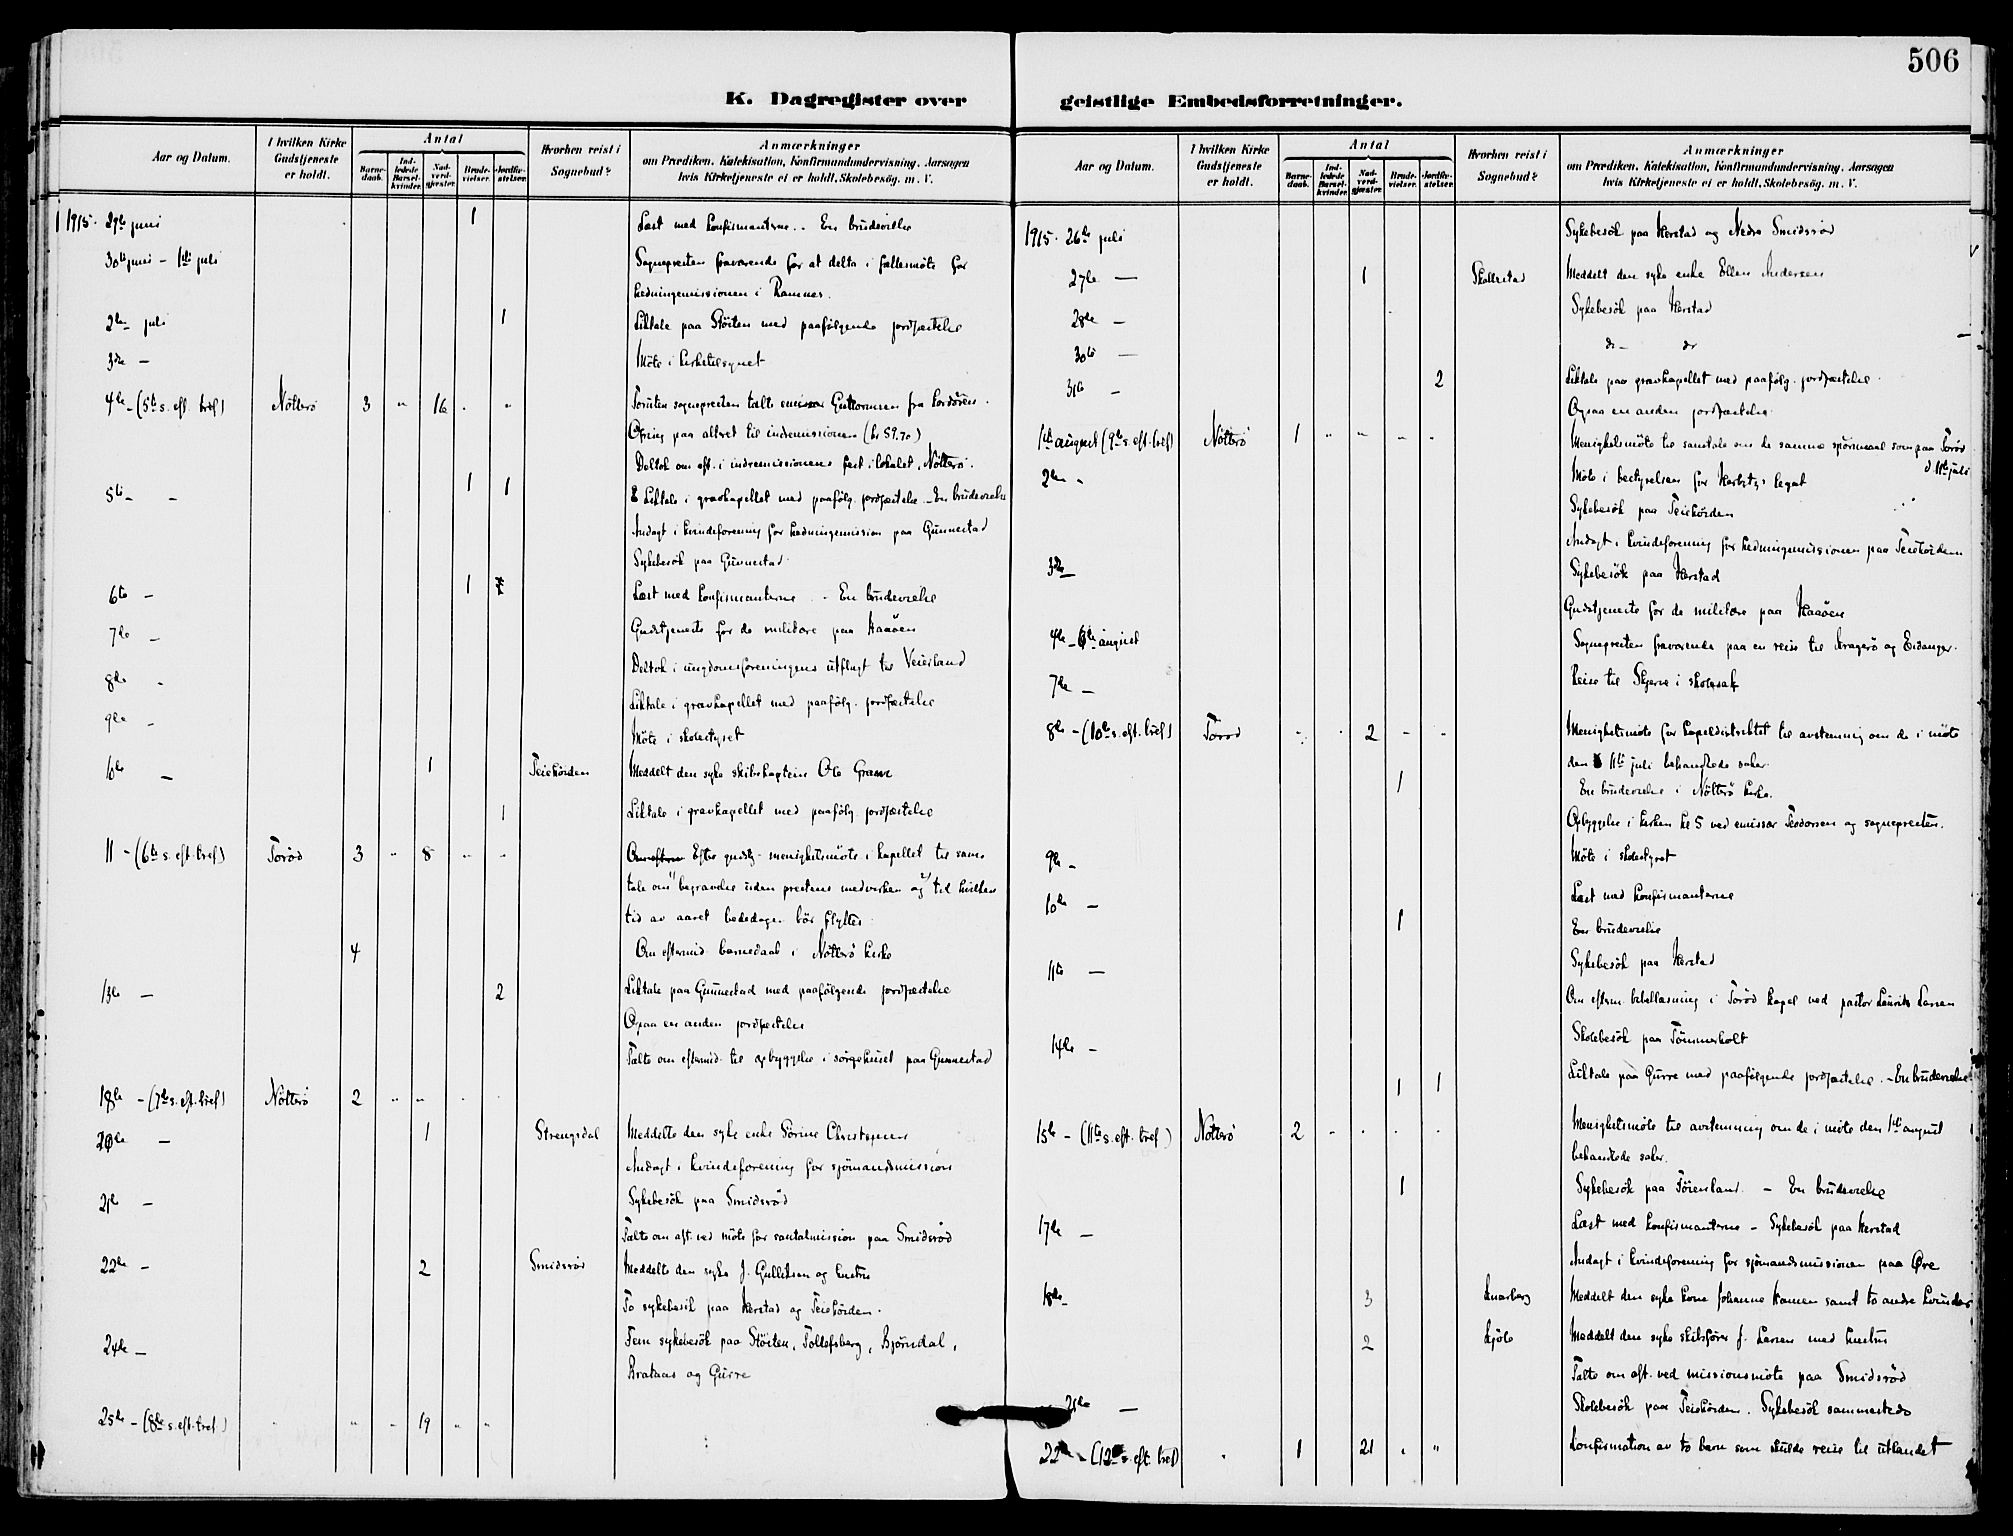 506
K. Dagregister over
geistlige Embedsforretninger.
Aar og Datum.
I hvilken Kirke Gudstjeneste er holdt.
Antal
Barne-daab.
Ind-ledede Barsel-kvinder.
Nad-verd-gjæster.
Brude-vielser.
Jordfæ-stelser.
Hvorhen reist i Sognebud?
Anmærkninger
om Prædiken, Katekisation, Konfirmandundervisning, Aarsagen
hvis Kirketjeneste ei er holdt, Skolebesøg, m. V.
1915. 29de juni 1 Læst med konfirmanterne. En brudevielse
30te juni - 1ste juli Sognepresten fraværende for at delta i fællesmöte for
hedningemissionen i Ramnes.
2den juli 1 Liktale paa Stöiten med paafölgende jordfæstelse
3die - Möte i kirketilsynet
4de - (5te s. eft. tref) Nötterö 3 " 16 . " Foruten sognepresten talte emissær Guttormsen fra
Ofring paa altret til indremissionen (kr 59.70)
Deltok om eft. i indremissionens fest i lokalet, Nötterö.
5te - - 1 1 Liktale i gravkapellet med paafölg. jordfæstelse - En brudevielse
Andagt i kvindeforening for hedningemission paa Gunnestad
Sykebesök paa Gunnestad
6te - 1 Læst med konfirmanterne. - En brudevielse
7de - Gudstjeneste for de militære paa Haaöen
Deltok i ungdomsforeningens utflugt til Veierland
8de - Liktale i gravkapellet med paafölg. jordfæstelse
9de - Möte i skolestyret
10de - 1 Teieskogen Meddelt den syke skibskaptein Ole Graae
1 Liktale i gravkapellet med paafölg. jordfæstelse
11 - (6te s. eft. tref) Toröd 3 " 8 " " Efter gudstj. menighetsmöte i kapellet til sam-
tale om 1) begravelse uden prestens medvirken og 2) til hvilken
tid av aaret bededagen bör flyttes.
4 Om eftermid. barnedaab i Nötterö kirke
13de - 2 Liktale paa Gunnestad med paafölgende jordfæstelse
Ogsaa en anden jordfæstelse
Talte om eftermid. til opbyggelse i sörgehuset paa Gunnestad
18de - (7de s. eft. tref) Nötterö 2 " " . .
20de - 1 Strengsdal Meddelte den syke enke Sörine Christensen
Andagt i kvindeforening for sjömandsmission
21de - Sykebesök paa Smidsröd
Talte om aft. ved möte for santalmission paa Smidsröd
22de - 2 Smidsröd Meddelte den syke J. Gulliksen og hustru
To sykebesök paa Herstad og Teieskogen.
24de - Fem sykebesök paa Stöiten, Tollefsberg, Bjørndal,
Brataas og Gurre
25de - (8de s. eft. tref) " " " 19 " "
Aar og Datum.
I hvilken Kirke Gudstjeneste er holdt.
Antal
Barne-daab.
Ind-ledede Barsel-kvinder.
Nad-verd-gjæster.
Brude-vielser.
Jordfæ-stelser.
Hvorhen reist i Sognebud?
Anmærkninger
om Prædiken, Katekisation, Konfirmandundervisning, Aarsagen
hvis Kirketjeneste ei er holdt, Skolebesög, m. V.
1915. 26de juli Sykebesök paa Herstad og Nedre Smidsröd
27de - 1 Skallestad Meddelt den syke enke Ellen Andersen
28de - Sykebesök paa Herstad
30te - do - do
31te - 2 Liktale paa gravkapellet med paafölg. jordfæstelse.
Ogsaa en anden jordfæstelse
1ste august (9de s. eft. tref) Nötterö 1 " " " " Menighetsmöte til samtale om de samme spörsmaal som paa Toröd
d. 11te juli
2den - Möte i bestyrelsen for Herbstys legat
Sykebesök paa Teieskogen
Andagt i kvindeforening for hedningemissionen paa Teieskogen
3die - Sykebesök paa Herstad
Gudstjeneste for de militære paa Haaöen
4de - 6te august Sognepresten fraværende paa en reise til Kragerö og Eidanger.
7de - Reise til Skjerve i skolesak
8de - (10de s. eft. tref) Torod - . 2 - - Menighetsmöte for kapeldistriktet til avstemning om de i möte
den 11te juli behandlede saker.
1 En brudevielse i Nötterö kirke.
Opbyggelse i kirken kl 5 ved emissær Teodorsen og sognepresten.
9de - Möte i skolestyret
10de - Læst med konfirmanterne
1 En brudevielse
11te - Sykebesök paa Herstad
Om efterm. bibellæsning i Torod kapel ved pastor Laurits Larsen
14de - Skolebesök paa Tömmerholt
1 1 Liktale paa Gurre med paafölgende jordfæstelse. - En brudevielse
15de - (11te s. eft. tref) Nötterö 2 - . . . Menighetsmöte til avstemning om de i möte den 1ste august
behandlede saker.
1 Sykebesök paa Förenland. - En brudevielse
17de - Læst med konfirmanterne - Sykebesök paa Herstad
Andagt i kvindeforening for sjömandsmissionen paa Øre
18de - 3 Knarberg Meddelt den syke kone Johanne Hansen samt to andre kvinder
2 Kjöle Meddelt den syke skibsförer J. Larsen med hustru
Talte om aft. ved missionsmöte paa Smidsröd
21de - Skolebesök paa Teieskogen. Sykebesök sammesteds
22de - (12te s. eft. tref) " 1 21 " " Konfirmation av to barn som skulde reise til utlandet